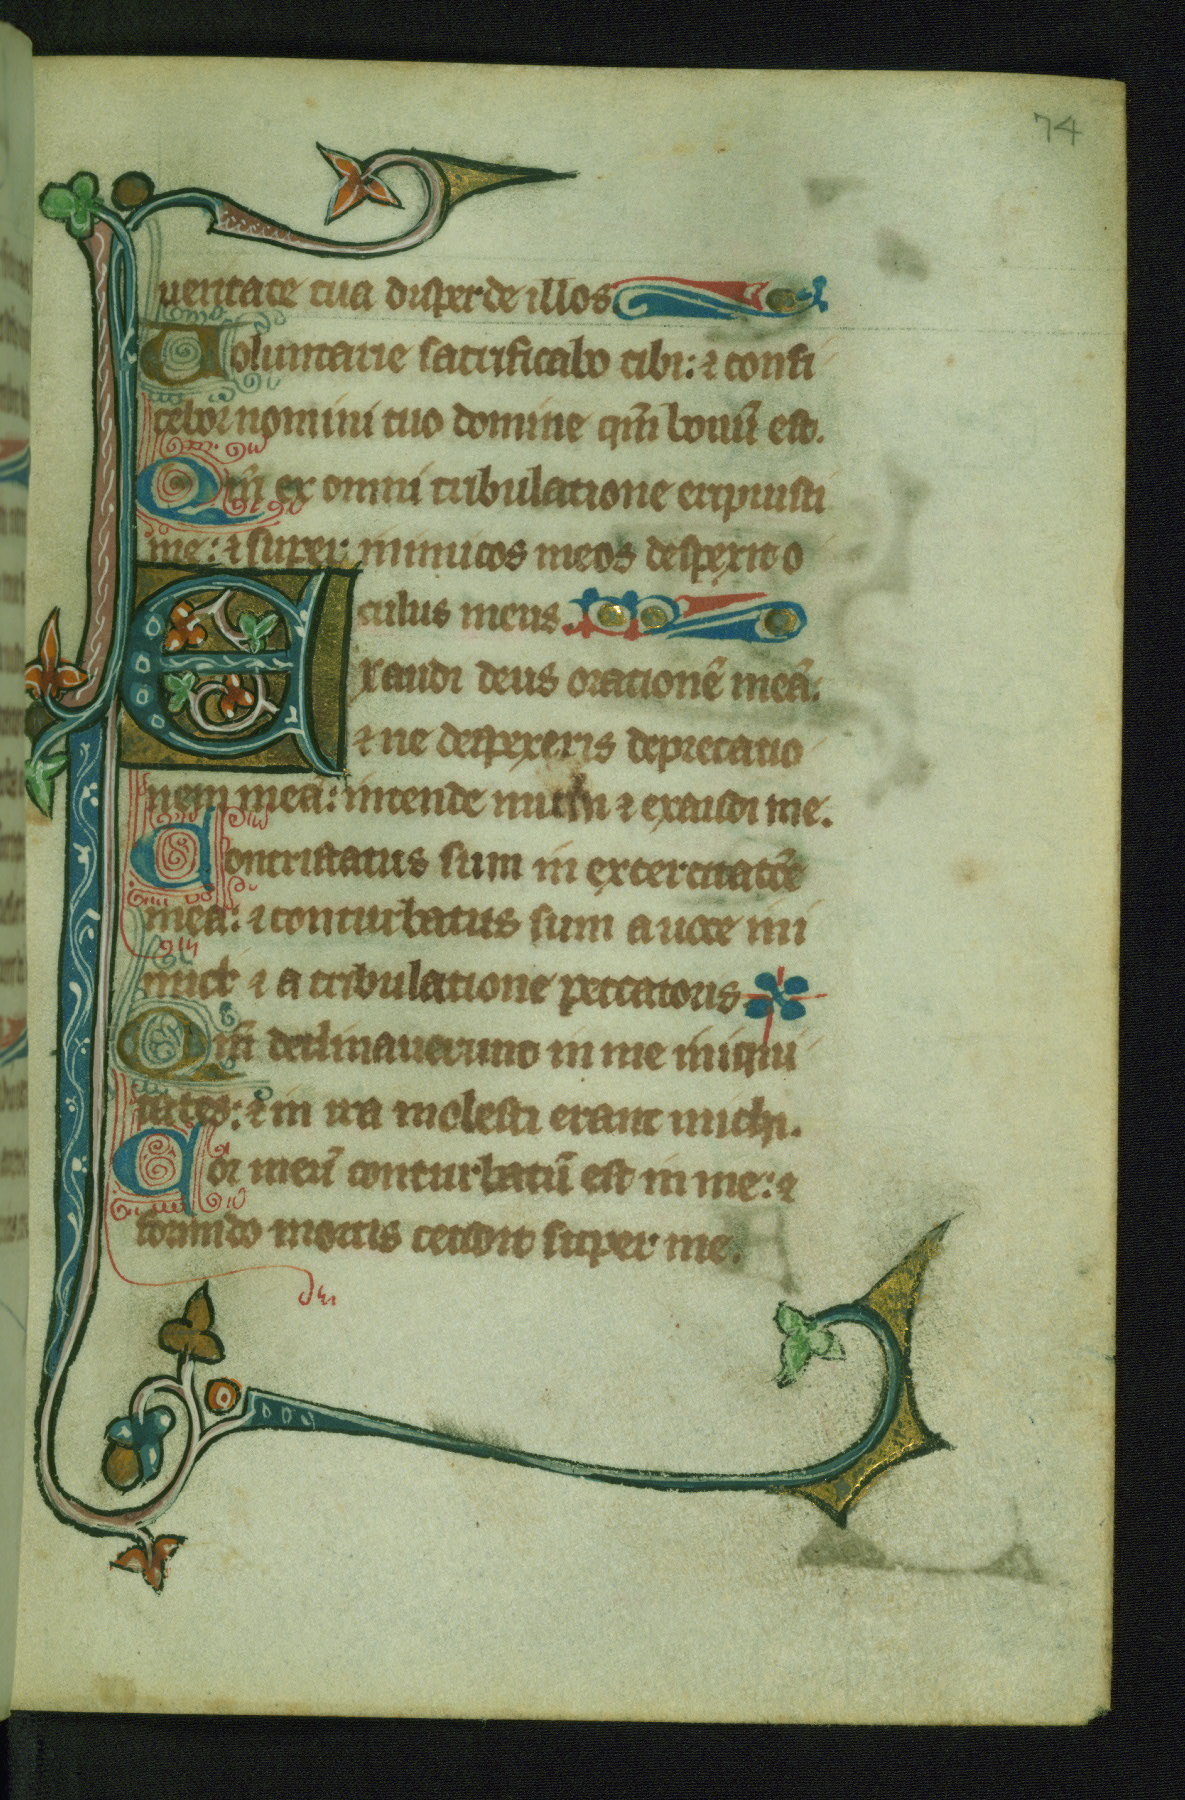 74
ueritate tua disperde illos
Uoluntarie sacrificabo tibi: ⁊ confi
tebor nomini tuo domine qm̄ bonū est.
Qm̄ ex omni tribulatione eripuisti
me: ⁊ super inimicos meos despexit o
culus meus.
Exaudi deus orationē meā:
⁊ ne despexeris deprecatio
nem meā: intende michi ⁊ exaudi me.
Contristatus sum in exercitatōe
mea: ⁊ conturbatus sum a uoce ini
mici ⁊ a tribulatione peccatoris
Qm̄ declinauerunt in me iniqui
tates: ⁊ in ira molesti erant michi.
Cor meū conturbatū est in me: ⁊
formido mortis cecidit super me.